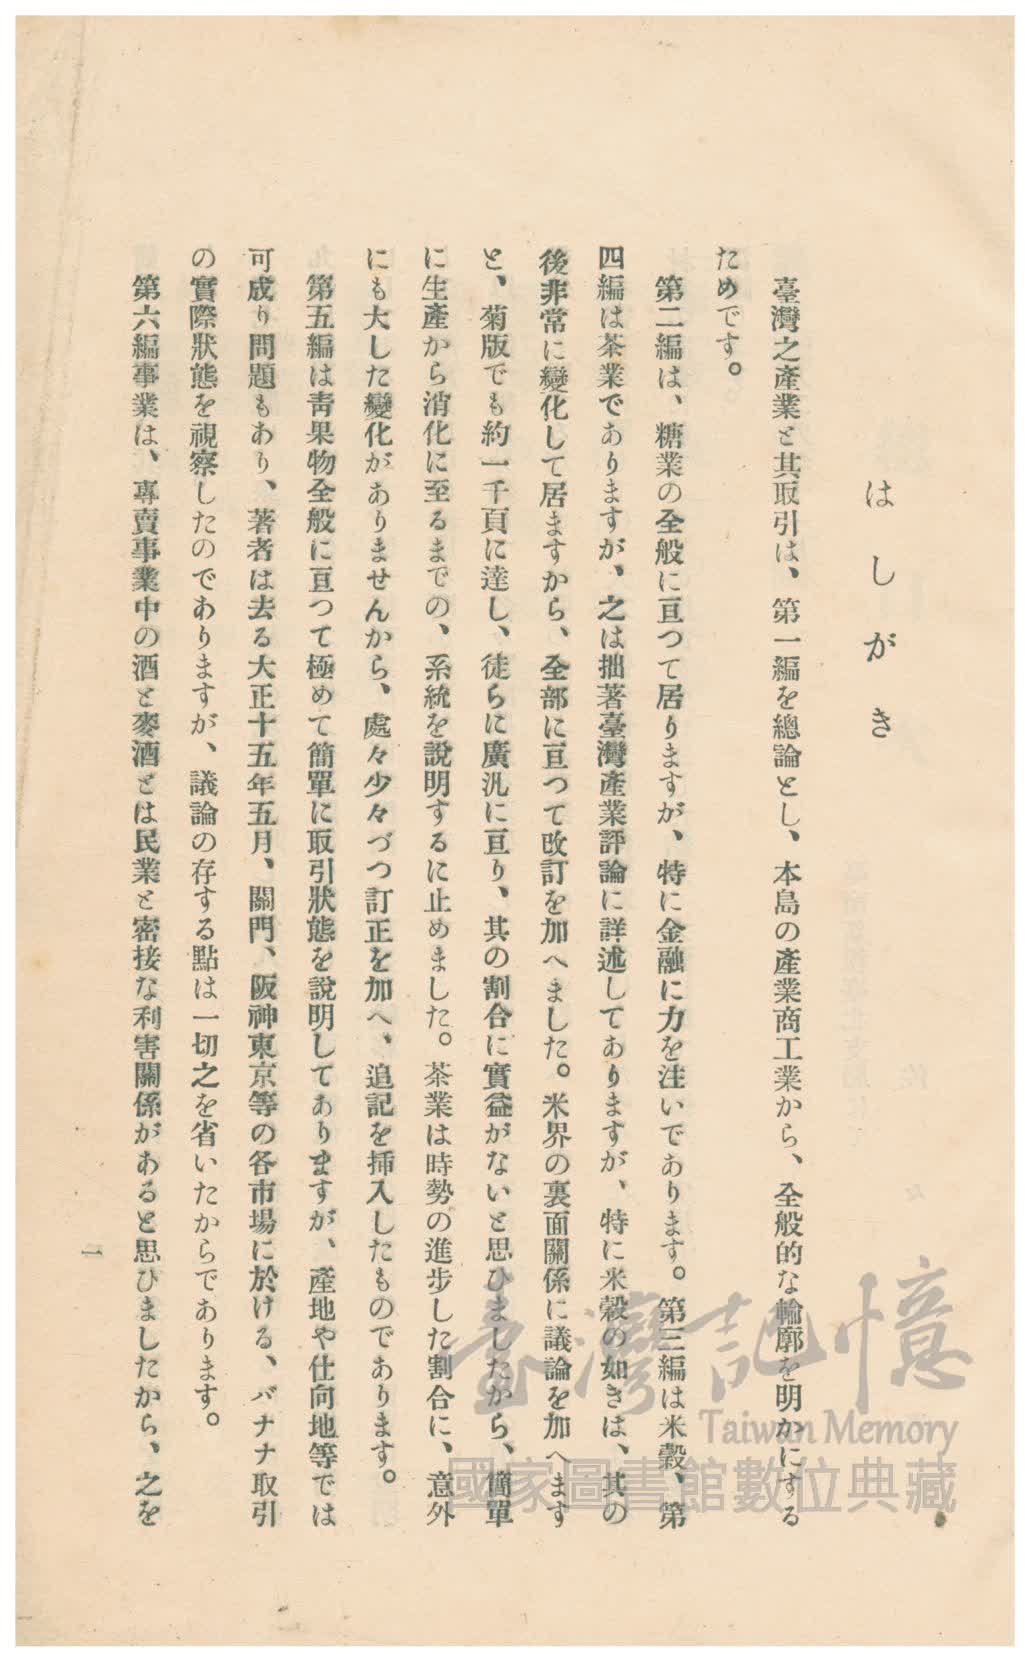 はしがき
臺灣之產業と其取引は、第一編を總論とし、本島の產業商工業から、全般的な輪廓を明かにする
ためです。
第二編は、糖業の全般に亘つて居りますが、特に金融に力を注いであります。第三編は米穀、第
四編は茶業でありますが、之は拙著臺灣產業評論に詳述してありますが、特に米穀の如きは、其の
後非常に變化して居ますから、全部に亘つて改訂を加へました。米界の裏面關係に議論を加へます
と、菊版でも約一千頁に達し、徒らに廣汎に亘り、其の割合に實益がないと思ひましたから、簡單
に生產から消化に至るまでの、系統を說明するに止めました。茶業は時勢の進步した割合に、意外
にも大した變化がありませんから、處々少々づつ訂正を加へ、追記を揷入したものであります。
第五編は靑果物全般に亘つて極めて簡單に取引狀態を說明してありますが、產地や仕向地等では
可成り問題もあり、著者は去る大正十五年五月、關門、阪神東京等の各市場に於ける、バナナ取引
の實際狀態を視察したのでありますが、議論の存する點は一切之を省いたからであります。
第六編事業は、專賣事業中の酒と麥酒とは民業と密接な利害關係があると思ひましたから、之を
一
臺灣記憶
Taiwan Memory
國家圖書館數位典藏